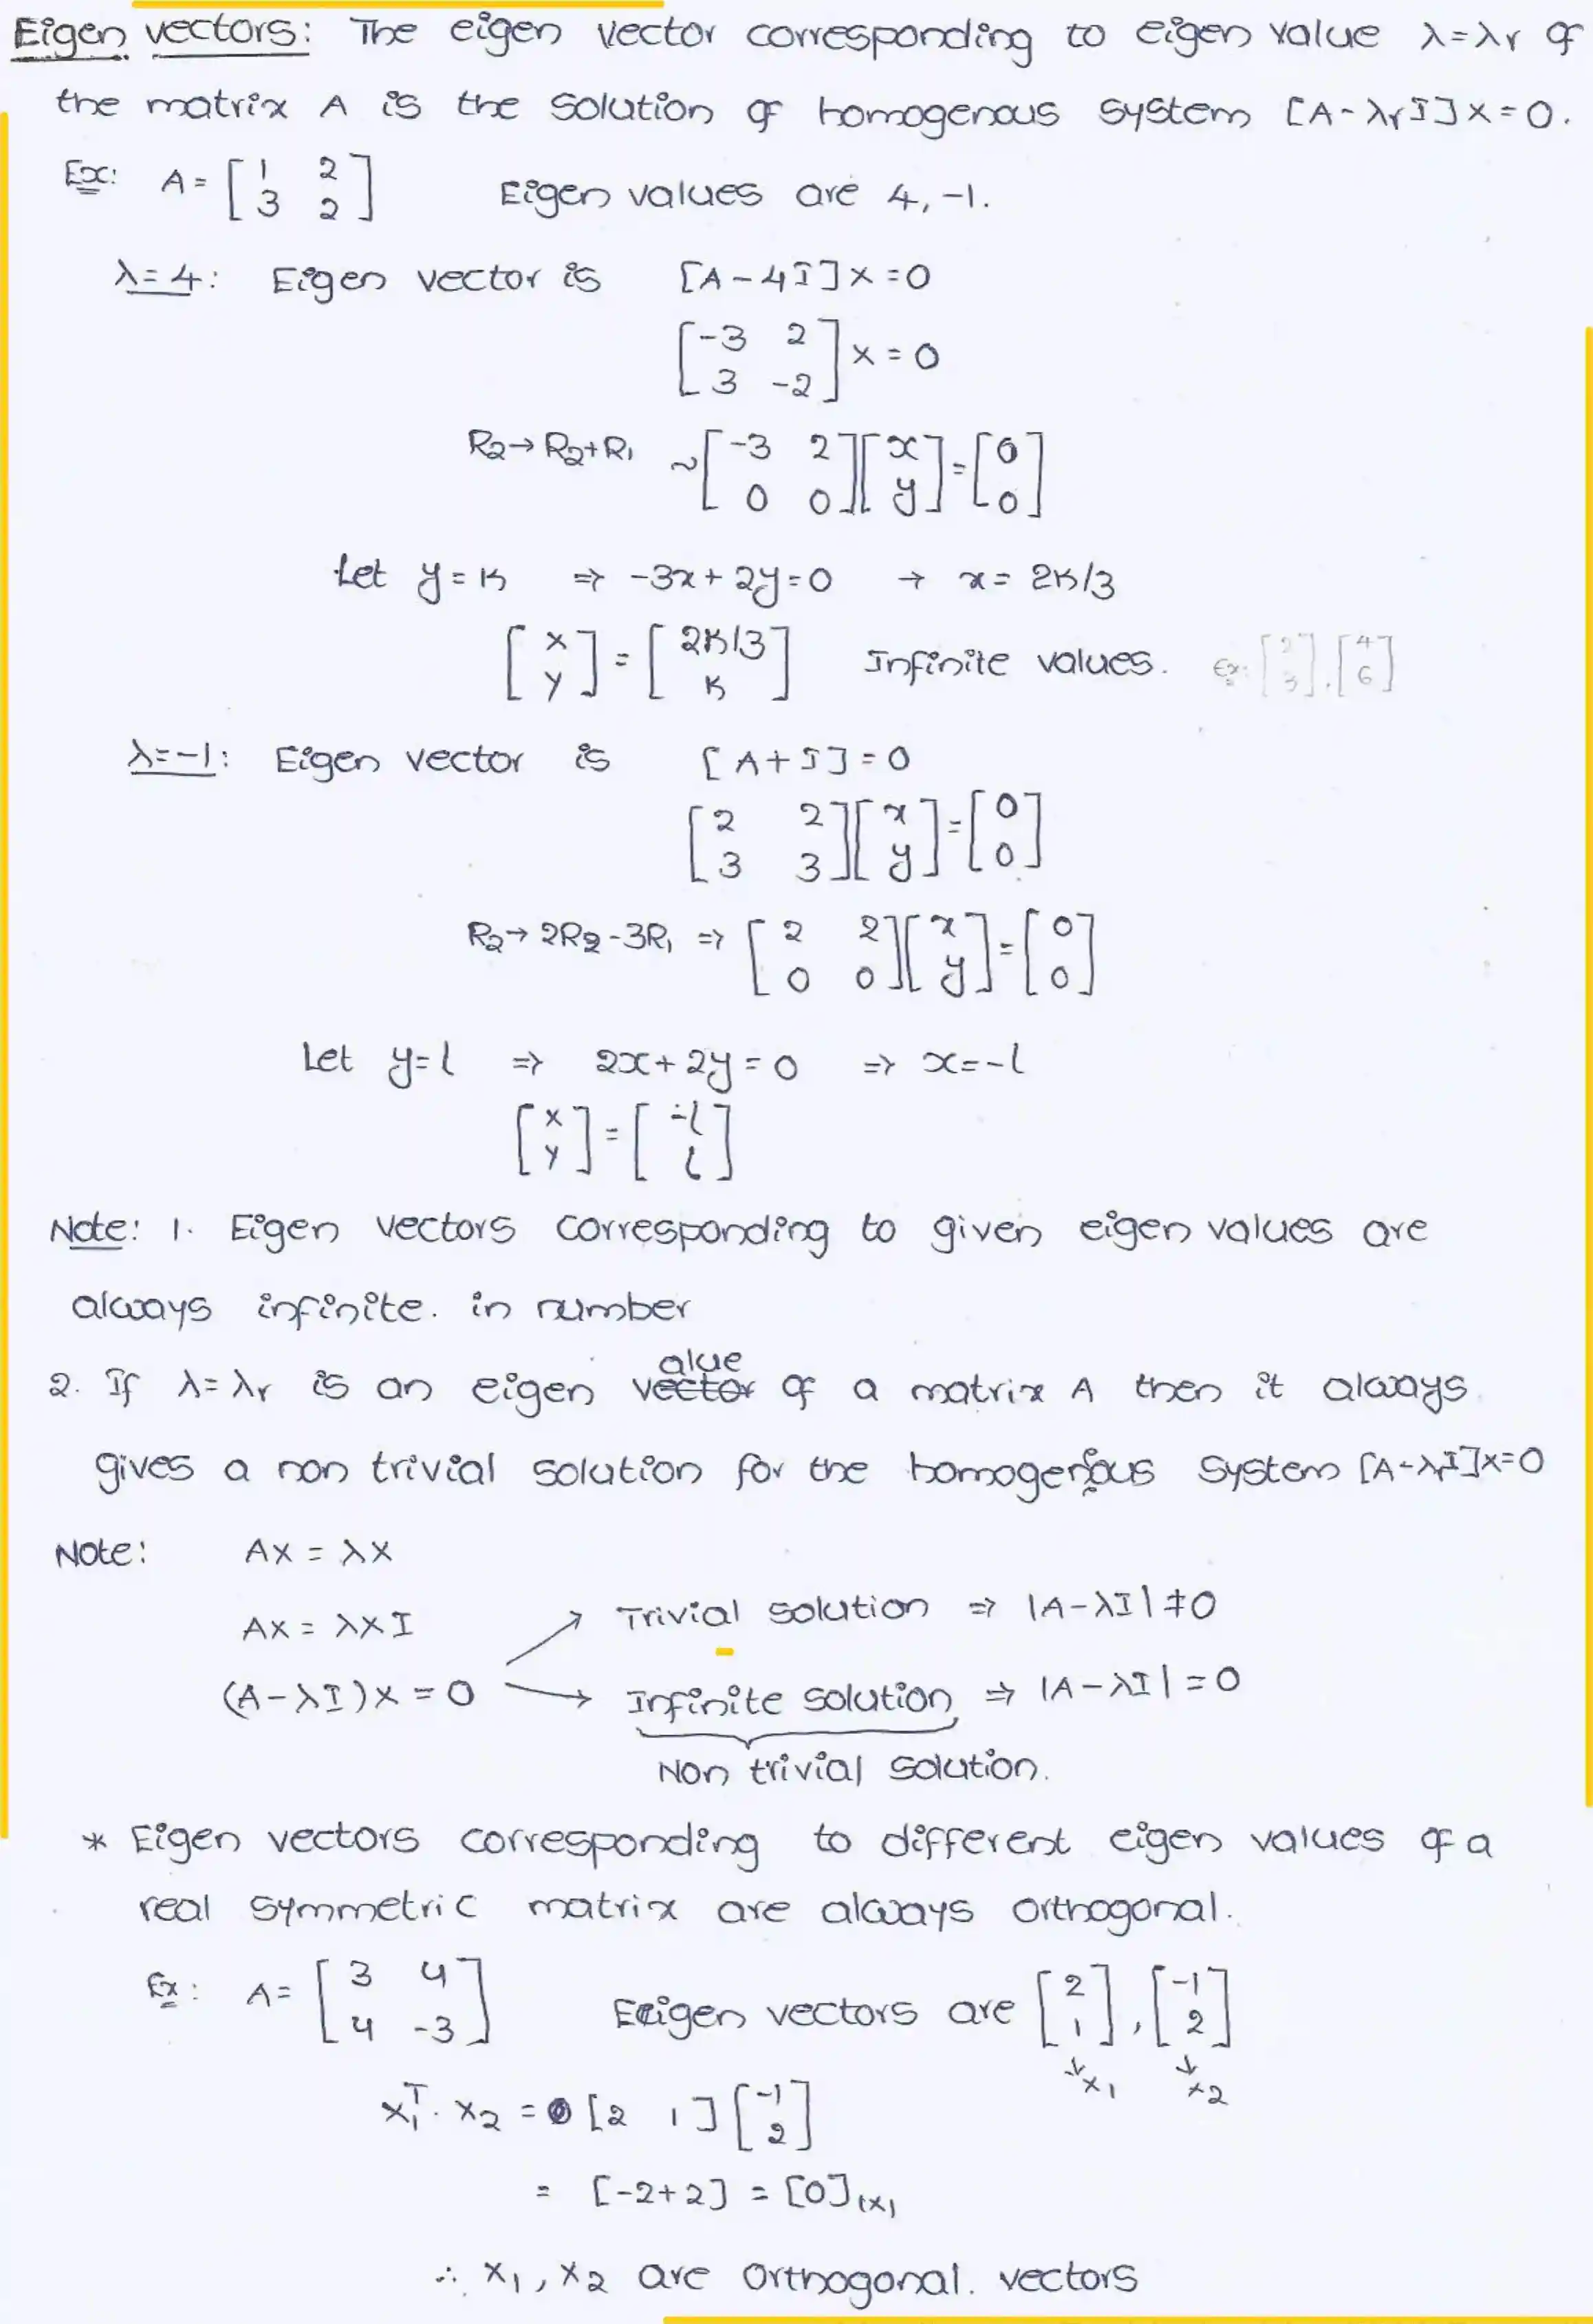 Eigen vectors: The eigen vector corresponding to eigen value λ=λr of
the matrix A is the solution of homogenous system [A-λrI]X=0.
Ex: A= [1 2; 3 2] Eigen values are 4,-1.
λ=4: Eigen vector is [A-4I]X=0
[-3 2; 3 -2] X=0
R2→R2+R1 ~[-3 2; 0 0][x; y]=[0; 0]
Let y=K ⇒ -3x+2y=0 → x= 2K/3
[x; y]=[2K/3; K] Infinite values. Ex: [2; 3],[4; 6]
λ=-1: Eigen vector is [A+I]=0
[2 2; 3 3][x; y]=[0; 0]
R2→2R2-3R1 ⇒ [2 2; 0 0][x; y]=[0; 0]
Let y=l ⇒ 2x+2y=0 ⇒ x=-l
[x; y]=[-l; l]
Note: 1. Eigen vectors corresponding to given eigen values are
always infinite. in number
2. If λ=λr is an eigen value of a matrix A then it always
gives a non trivial solution for the homogenous system [A-λrI]X=0
Note: AX = λX
AX = λXI
Trivial solution ⇒ |A-λI|≠0
(A-λI)X = 0
Infinite solution ⇒ |A-λI|=0
Non trivial solution.
* Eigen vectors corresponding to different eigen values of a
real symmetric matrix are always orthogonal.
Ex: A= [3 4; 4 -3] Eigen vectors are [2; 1],[-1; 2]
↓X1 ↓X2
X1^T.X2 = [2 1][-1; 2]
= [-2+2] = [0]1x1
∴ X1,X2 are Orthogonal. vectors